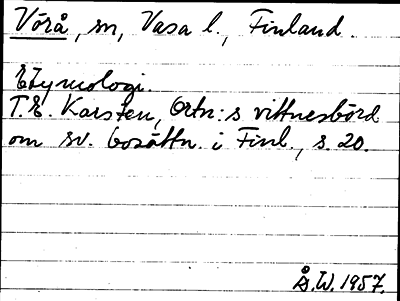 Vörå, sn, Vasa l., Finland.
Etymologi.
T. E. Karsten, Ortn:s vittnesbörd
om sv. bosättn. i Finl., s. 20.
Å. W. 1957.